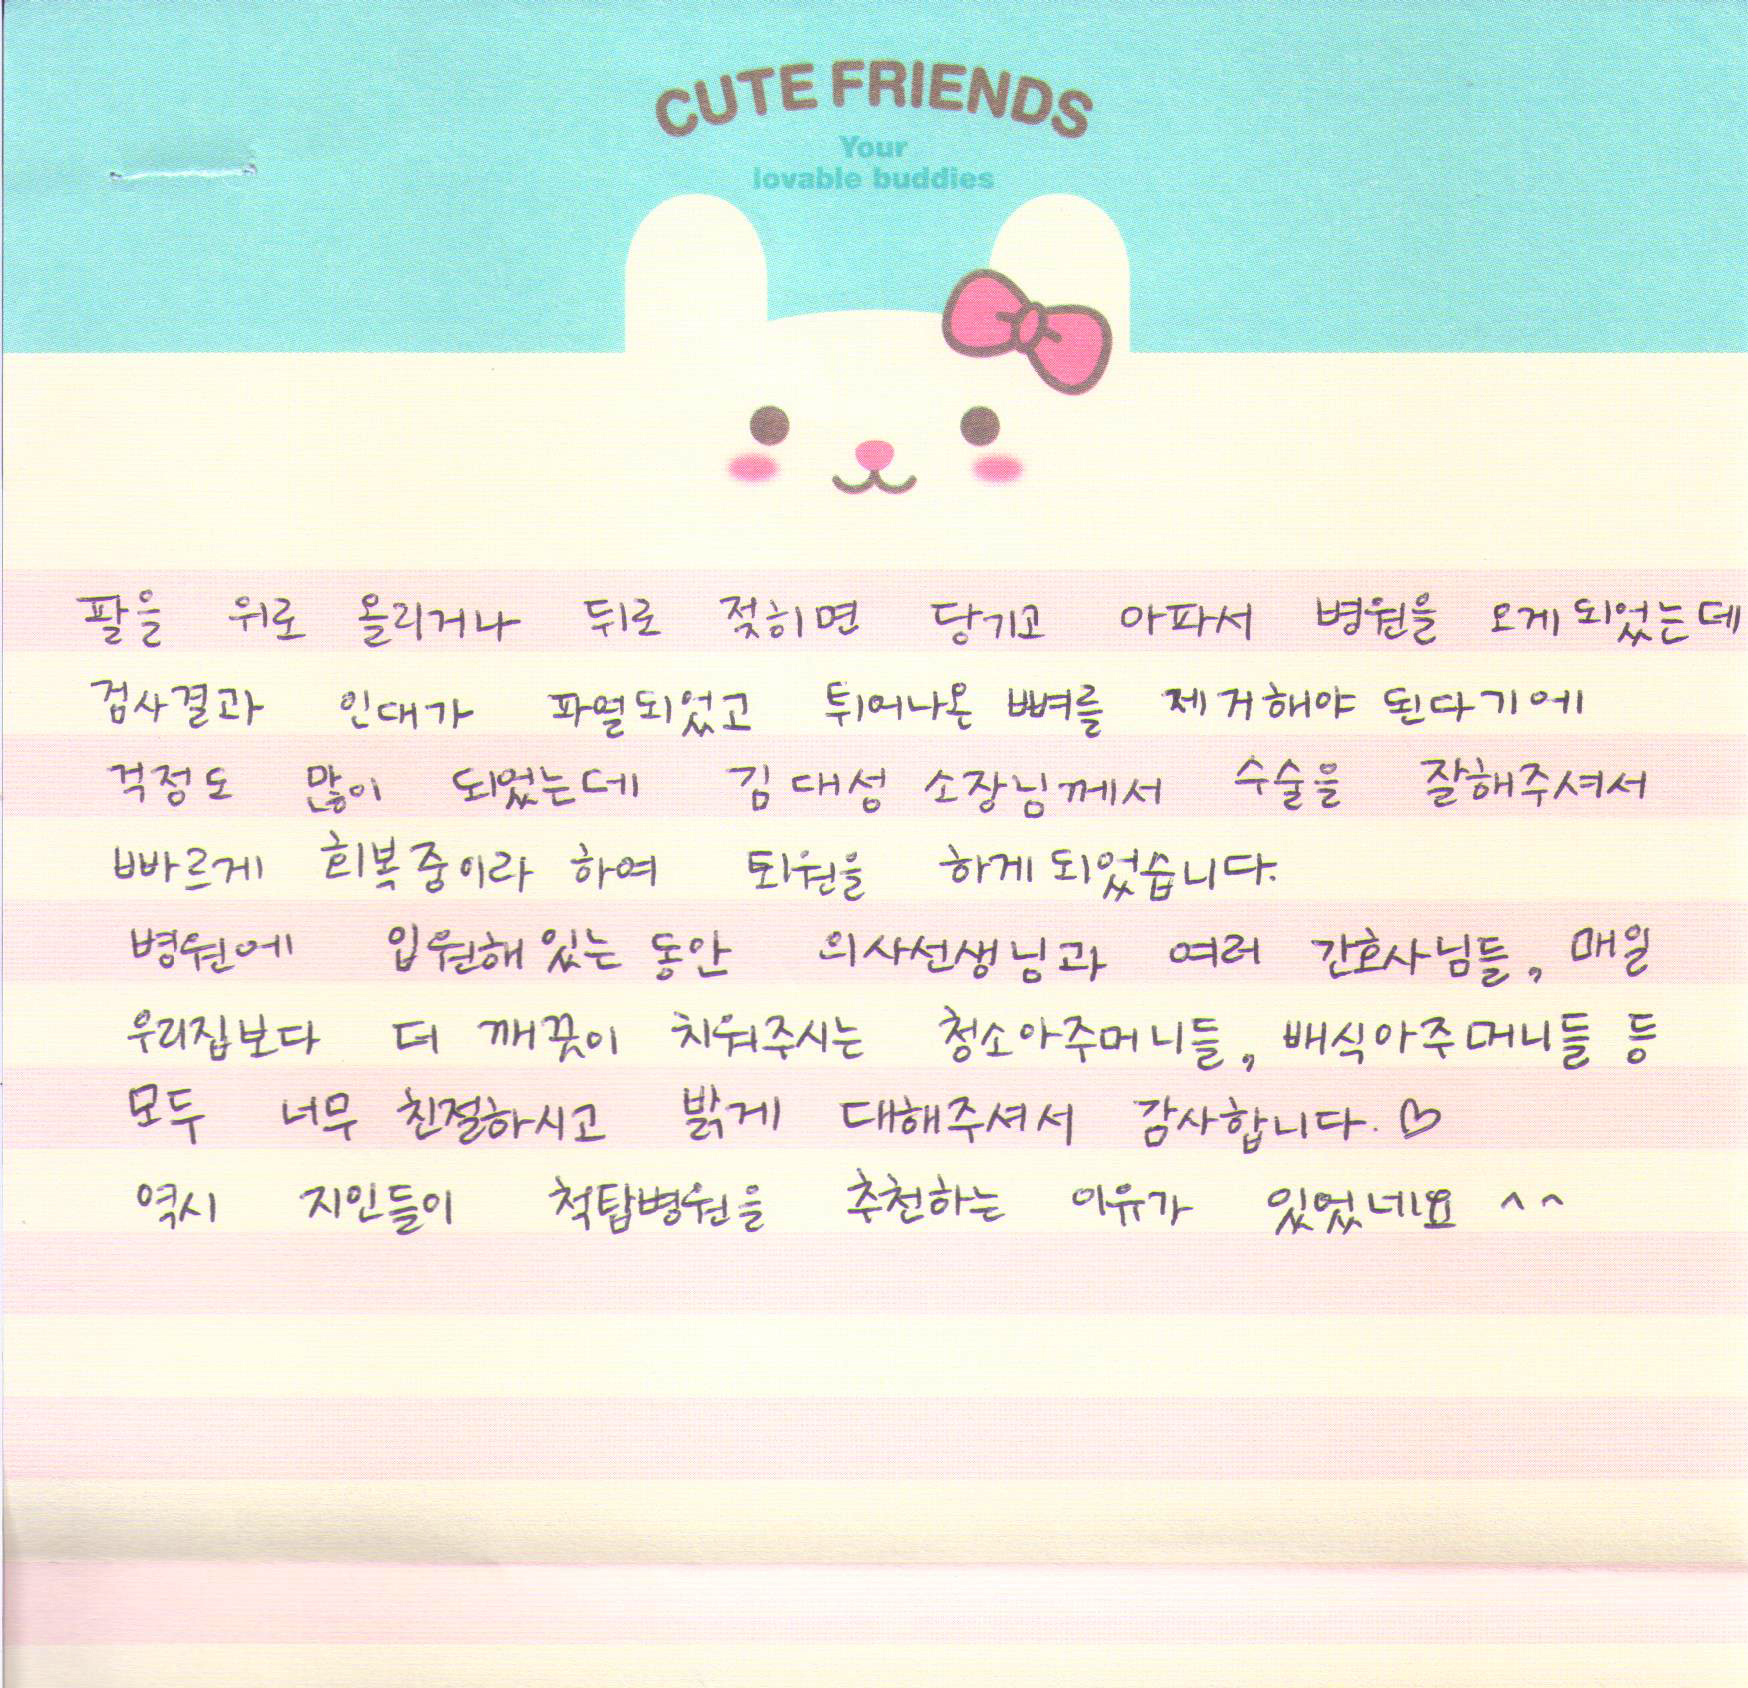 CUTE FRIENDS
Your
lovable buddies
팔을 위로 올리거나 뒤로 젖히면 당기고 아파서 병원을 오게되었는데
검사결과 인대가 파열되었고 튀어나온 뼈를 제거해야 된다기에
걱정도 많이 되었는데 김대성 소장님께서 수술을 잘해주셔서
빠르게 회복중이라 하여 퇴원을 하게되었습니다.
병원에 입원해있는 동안 의사선생님과 여러 간호사님들, 매일
우리집보다 더 깨끗이 치워주시는 청소아주머니들, 배식아주머니들 등
모두 너무 친절하시고 밝게 대해주셔서 감사합니다. ♡
역시 지인들이 척탑병원을 추천하는 이유가 있었네요 ^^